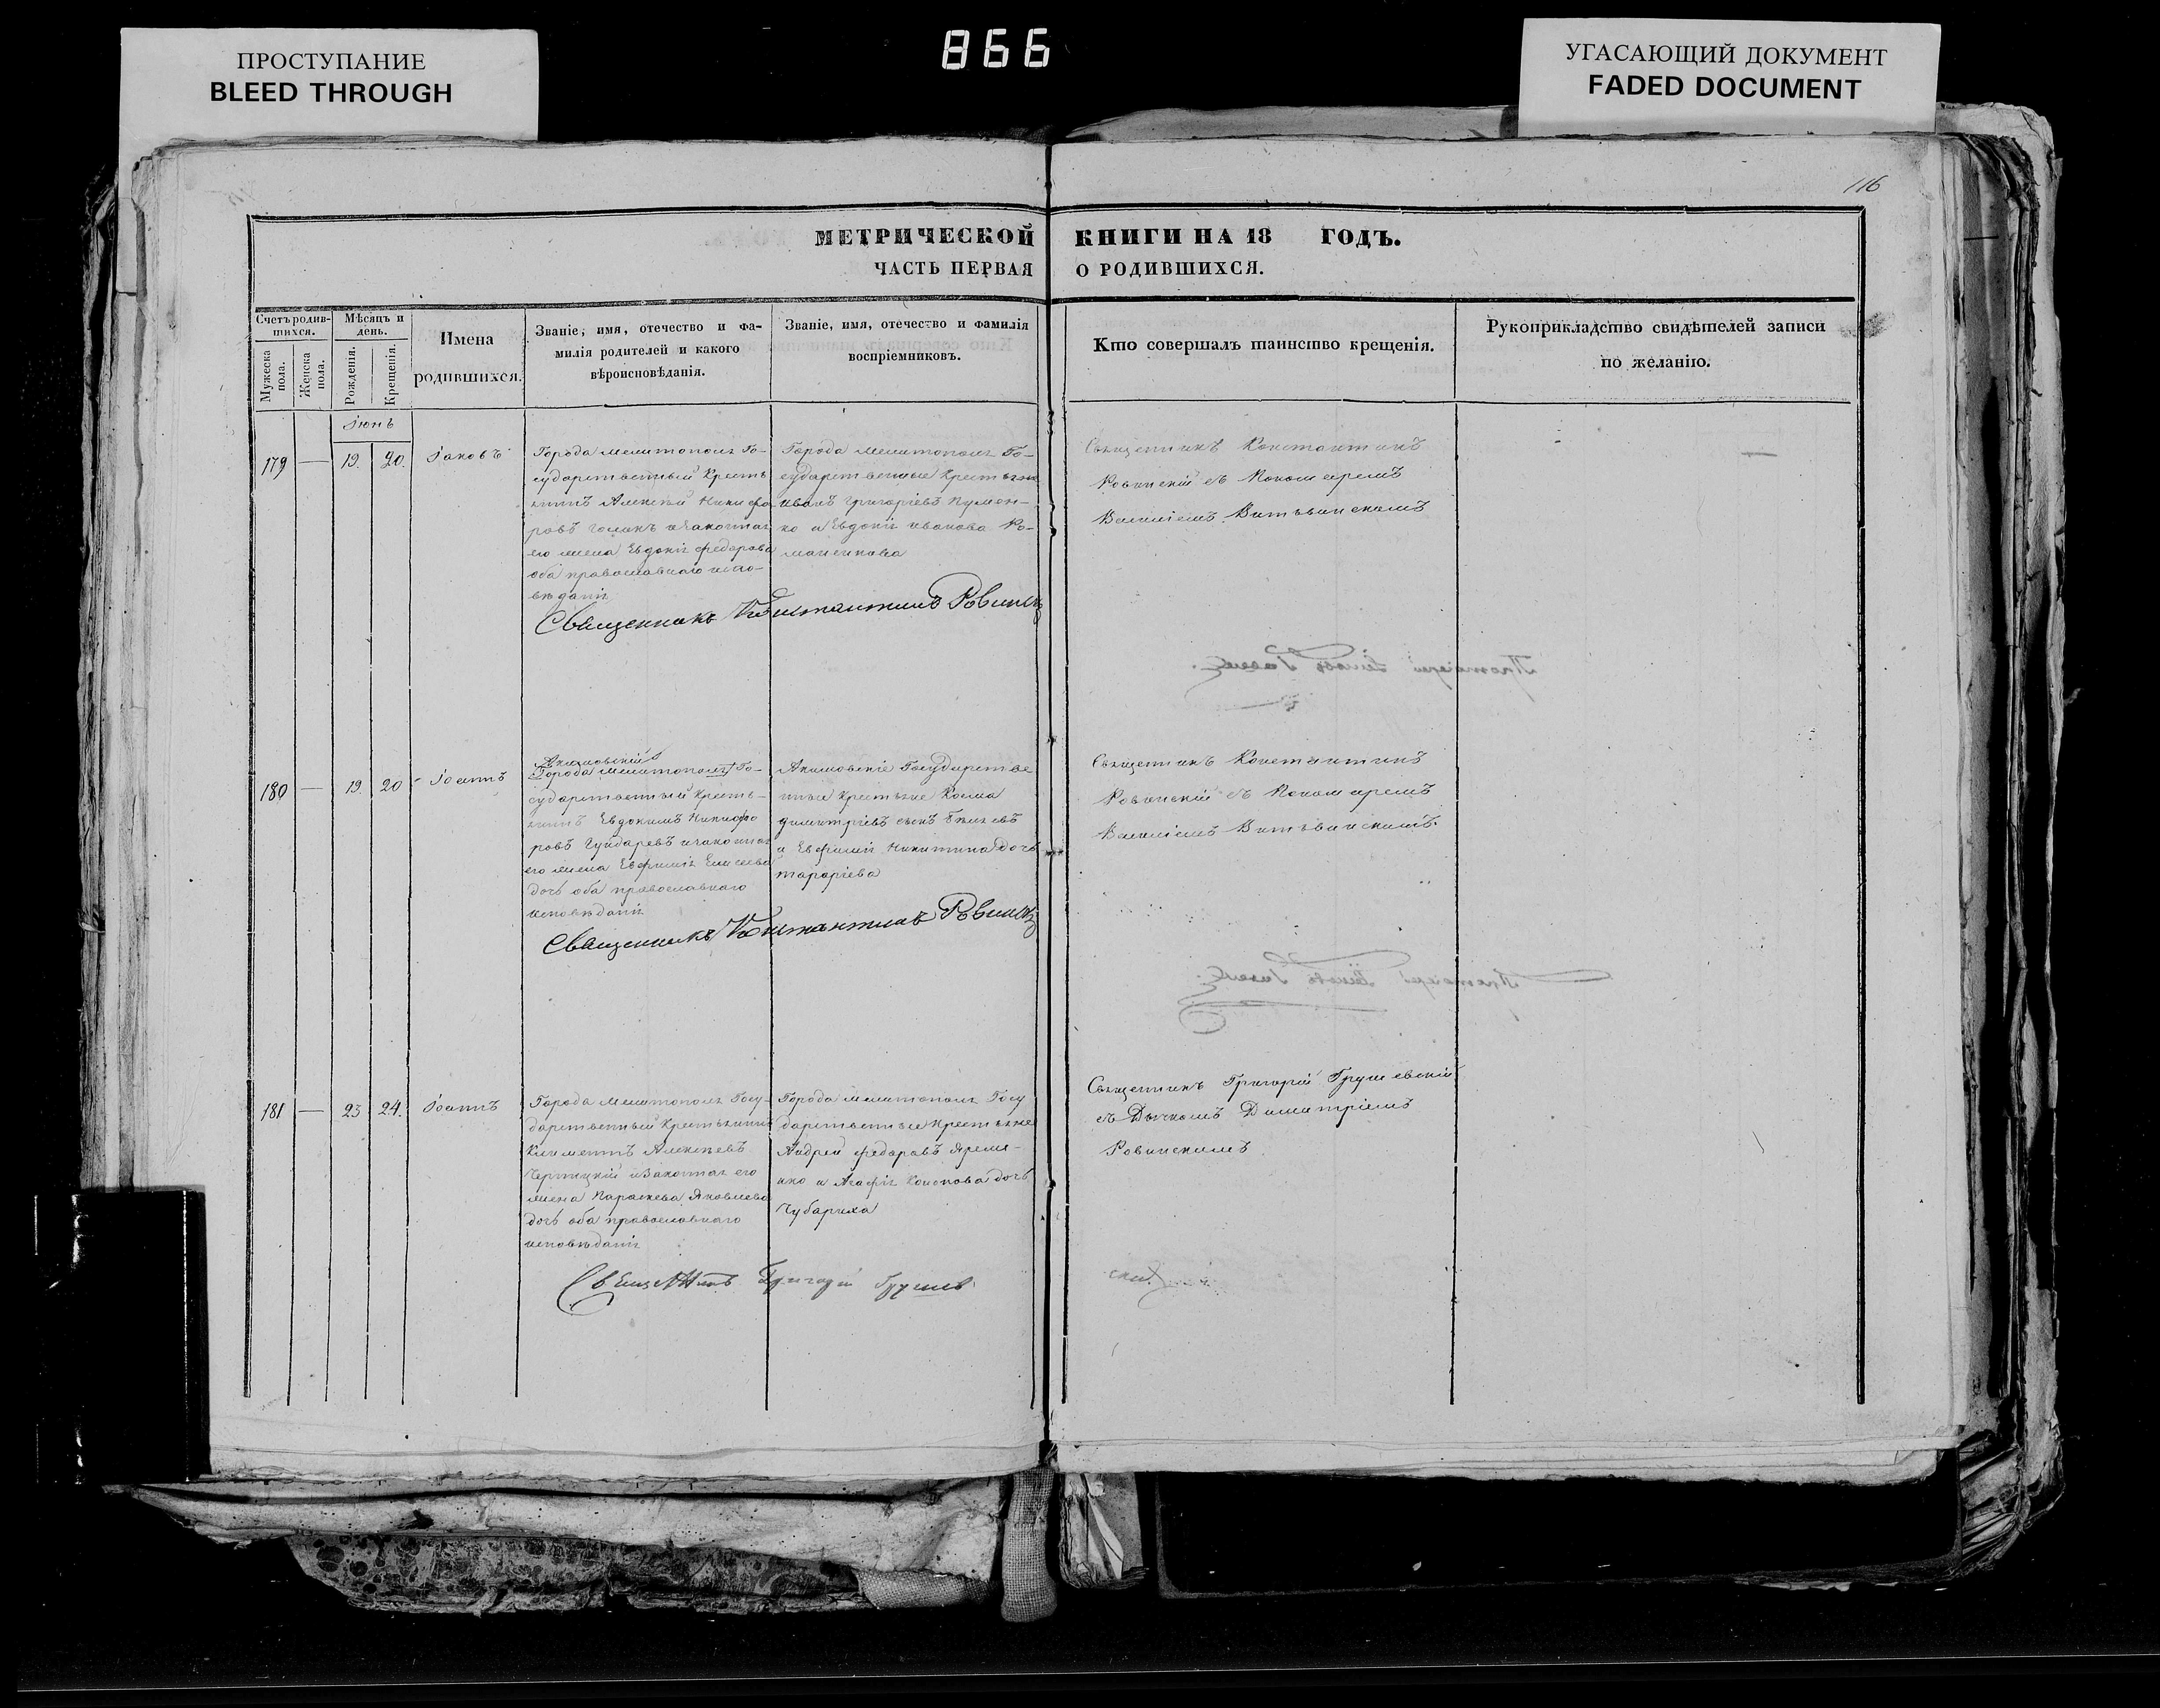 ПРОСТУПАНИЕ
BLEED THROUGH
866
УГАСАЮЩИЙ ДОКУМЕНТ
FADED DOCUMENT
116
МЕТРИЧЕСКОЙ КНИГИ НА 18 ГОДЪ.
ЧАСТЬ ПЕРВАЯ О РОДИВШИХСЯ.
Счетъ родив-
шихся.
Мужеска
пола.
Женска
пола.
Мѣсяцъ и
день.
Рожденія.
Крещенія.
Имена
родившихся.
Званіе, имя, отечество и фа-
милія родителей и какого
вѣроисповѣданія.
Званіе, имя, отечество и фамилія
воспріемниковъ.
Кто совершалъ таинство крещенія.
Рукоприкладство свидѣтелей записи
по желанію.
Іюнь
179 — 19. 20. Іаковъ
Города Мелитополя Го-
сударственный Кресть
янинъ Алексѣй Никифо
ровъ и законная
его жена Евдокія Федорова
оба православнаго испо-
вѣданія
Города Мелитополя Го-
сударственные Крестьяне
Иванъ Григоріевъ
ко и Евдокія Иванова Ро-
маненкова
Священникъ Константинъ
Ровинскій съ Пономаремъ
Василіемъ Витвинскимъ
—
Священникъ Константинъ Ровинскій
180 — 19. 20 Іоаннъ
Акимовскій
Города Мелитополя Го-
сударственный Кресть-
янинъ Евдокимъ Никифо
ровъ Гундаревъ и законная
его жена Евфимія Елисеева
дочь оба православнаго
исповѣданія
Акимовскіе Государстве
нные Крестьяне Косма
Димитріевъ сынъ Бѣляевъ
и Евфимія Никитина дочь
Священникъ Константинъ
Ровинскій съ Пономаремъ
Василіемъ Витвинскимъ.
Священникъ Константинъ Ровинскій
181 — 23 24. Іоаннъ
Города Мелитополя Госу-
дарственный Крестьянинъ
Климентъ Алексѣевъ
и законная его
жена Параскева Яковлева
дочь оба православнаго
исповѣданія
Города Мелитополя Госу
дарственные Крестьяне
Андрей Федоровъ Яреме-
нко и Агафія дочь
Чубариха
Священникъ Григорій Грушевскій
съ Дьячкомъ Димитріемъ
Ровинскимъ
Священникъ Григорій Грушев
скій